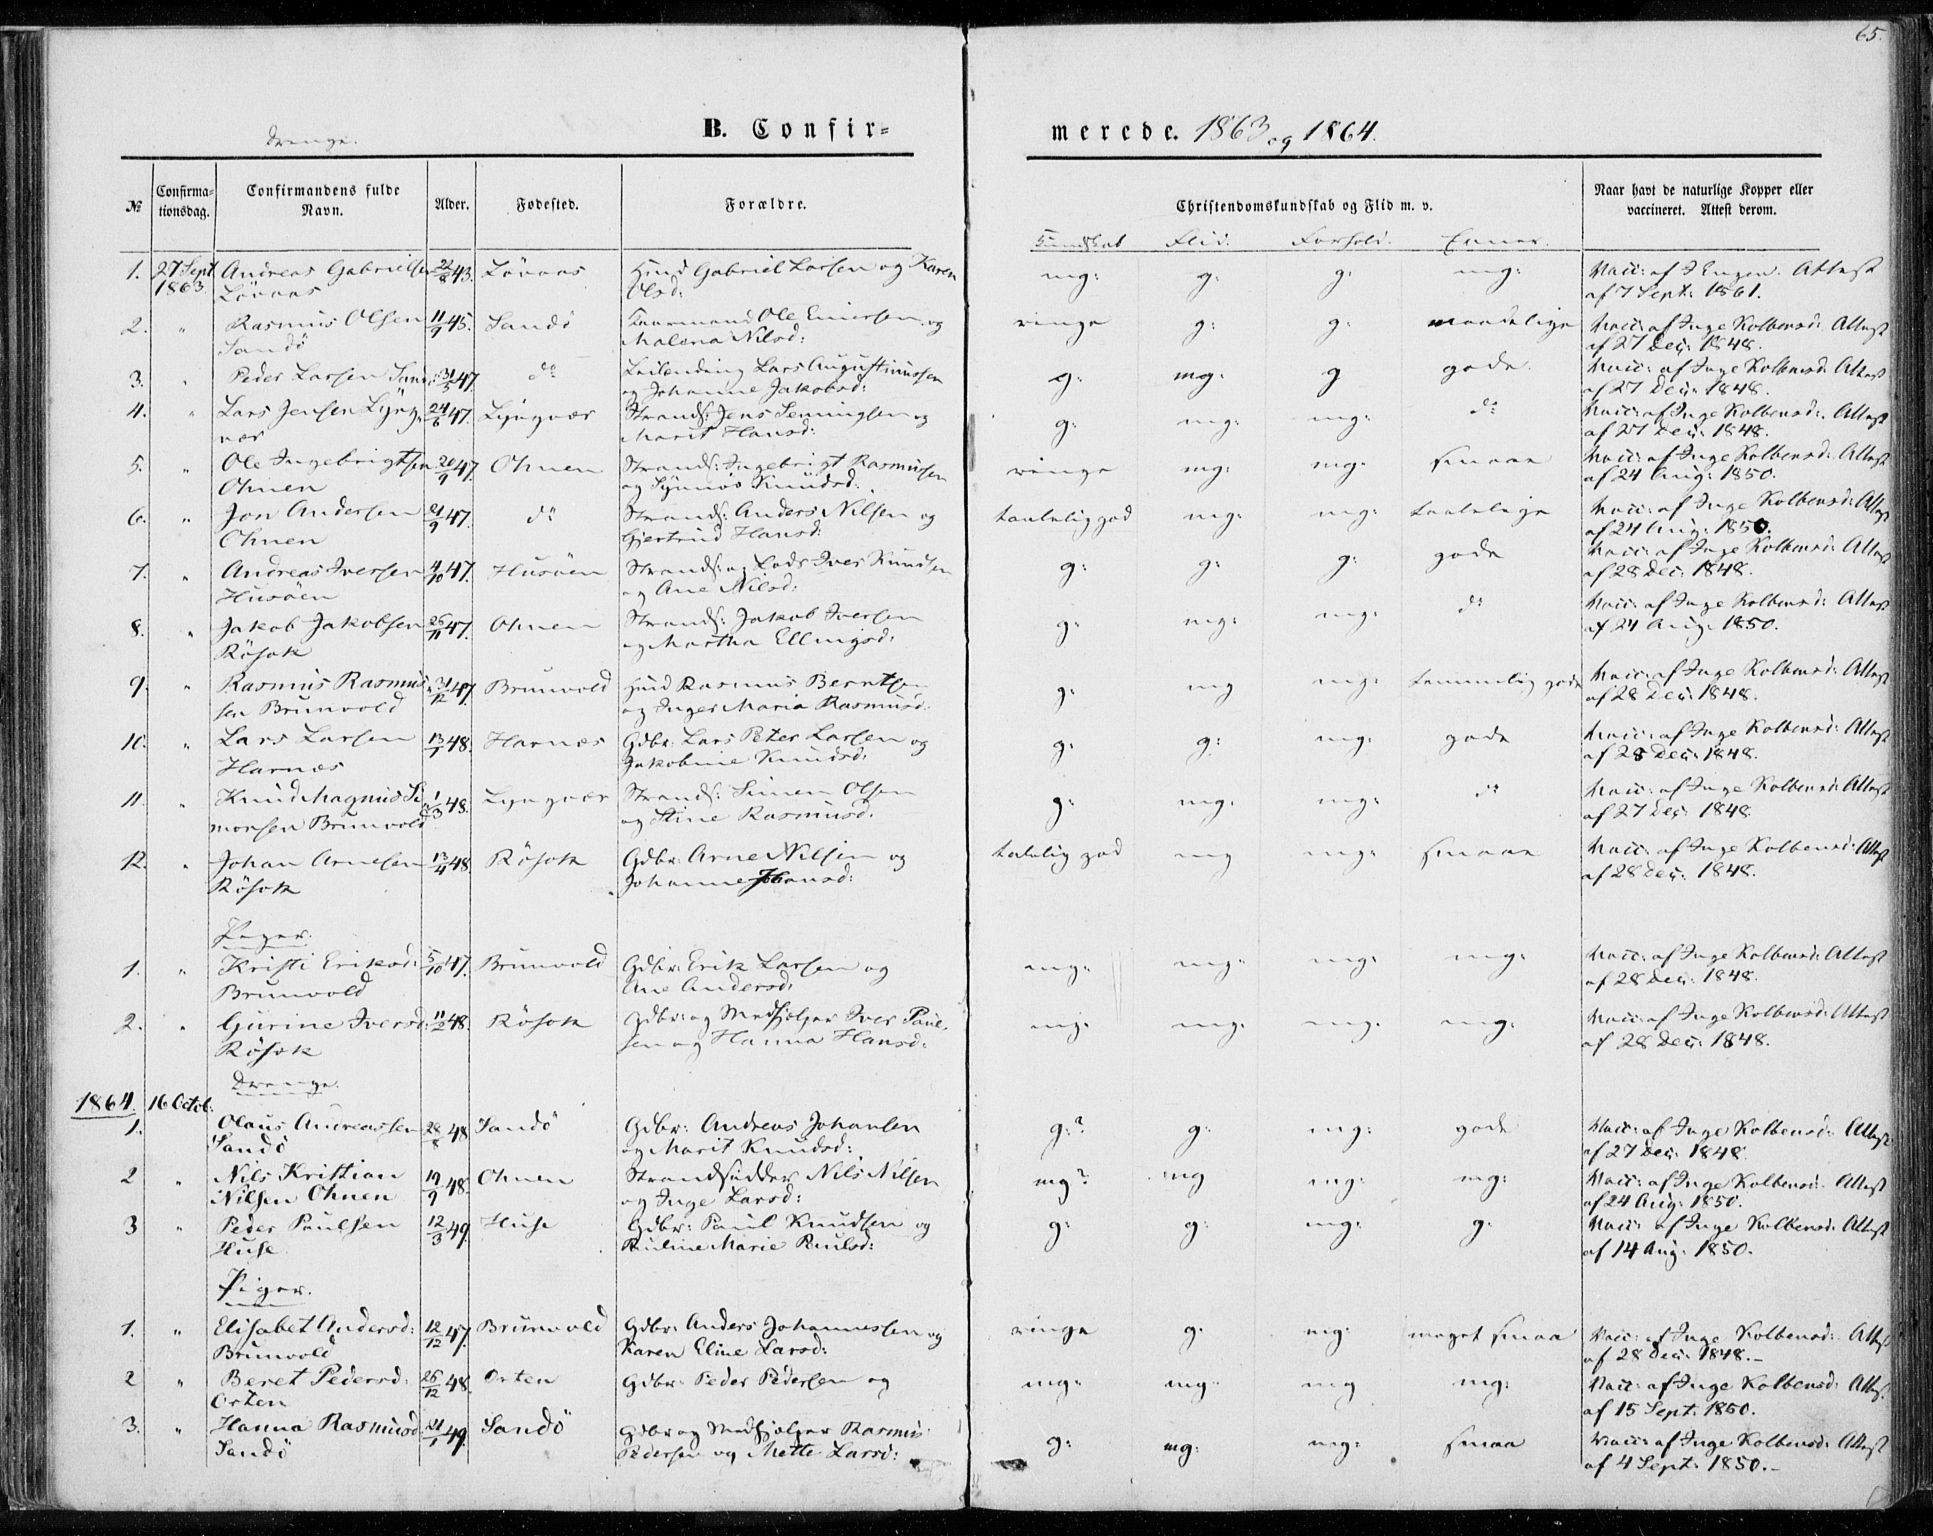 65.
Drenge.
B. Confir=
merede. 1863 og 1864.
№ Confirma-tionsdag. Confirmandens fulde Navn. Alder. Fødested. Forældre. Christendomskundskab og Flid m. v. Naar havt de naturlige Kopper eller vaccineret. Attest derom.
Kundskab Flid. Forhold. Evner.
1. 27 Sept 1863. Andreas Gabrielsen 22/8 43. Lövaas Huusd Gabriel Larsen og Karen mg: g: g: mg: Vacc: af J Engen. Attest
Lövaas Olsd: af 7 Sept: 1861.
2. " Rasmus Olsen 11/9 45. Sandö Kaarmand Ole Einersen og ringe g: g: maadelige Vacc: af Inge Kolbensd: Attest
Sandö Malena Nilsd: af 27 Dec: 1848.
3. " Peder Larsen Sand: 31/5 47. do Leilending Lars Augustinussen g: mg: g gode. Vacc: af Inge Kolbensd: Attest
og Johanne Jakobsd: af 27 Dec: 1848.
4. " Lars Jensen Lyng- 24/6 47. Lyngvær Strands: Jens Hemingsen og g: mg: mg: do Vacc: af Inge Kolbensd: Attest
vær Marit Hansd: af 27 Dec: 1848.
5. " Ole Ingebrigtsen 20/9 47. Ohnen Strands: Ingebrigt Rasmussen ringe mg: mg: smaae Vacc: af Inge Kolbensd: Attest
Ohnen og Synnöv Knudsd: af 24 Aug: 1850.
6. " Jon Andersen 21/9 47. do Strands: Anders Nilsen og taalelig god mg: mg: taalelige Vacc: af Inge Kolbensd: Attest
Ohnen Gjertrud Hansd: af 24 Aug: 1850.
7. " Andreas Iversen 4/10 47. Husöen Strands: og Lods Iver Knudsen g: g: g: gode Vacc: af Inge Kolbensd: Attest
Husöen og Ane Nilsd: af 28 Dec: 1848.
8. " Jakob Jakobsen 26/11 47. Ohnen Strands: Jakob Iversen g: mg: mg: do Vacc: af Inge Kolbensd: Attest
Rösok og Martha Ellingsd: af 24 Aug: 1850.
9. " Rasmus Rasmus- 31/12 47. Brunvold Huusd Rasmus Berntsen g: mg mg: temmelig gode Vacc: af Inge Kolbensd: Attest
sen Brunvold og Inger Maria Rasmusd: af 28 Dec: 1848.
10. " Lars Larsen 13/1 48. Harnæs Gdbr: Lars Peter Larsen og g: g: mg: gode Vacc: af Inge Kolbensd: Attest
Harnæs Jakobine Knudsd: af 28 Dec: 1848.
11. " Knud Magnus Si- 1/3 48. Lyngvær Strands: Simen Olsen g: mg: mg: do Vacc: af Inge Kolbensd: Attest
monsen Brunvold og Stine Rasmusd. af 27 Dec: 1848.
12. " Johan Arnesen 13/4 48 Rösok Gdbr: Arne Nilsen og taalelig god mg mg: smaae Vacc: af Inge Kolbensd: Attest
Rösok Johanne Hansd: af 28 Dec: 1848.
Piger.
1. " Kristi Eriksd: 5/10 47. Brunvold Gdbr: Erik Larsen og mg: mg: mg: mg: Vacc: af Inge Kolbensd: Attest
Brunvold Ane Andersd: af 28 Dec: 1848.
2. " Gurine Iversd: 11/2 48. Rösok Gdbr: og Medhjelper Iver Paul- mg: mg: mg: mg: Vacc: af Inge Kolbensd: Attest
Rösok sen og Hanna Hansd: af 28 Dec: 1848.
Drenge.
1864. 16 Octob:
1. Olaus Andreassen 28/8 48 Sandö Gdbr: Andreas Johansen g:? g: mg: gode Vacc: af Inge Kolbensd: Attest
Sandö og Marit Knudsd: af 27 Dec: 1848.
2 " Nils Kristian 19/9 48. Ohnen Strandsidder Nils Nilsen mg? mg mg: mg: Vacc: af Inge Kolbensd: Attest
Nilsen Ohnen og Inge Larsd: af 24 Aug: 1850.
3 " Peder Paulsen 12/3 49. Huse Gdbr: Paul Knudsen og g: g: mg: g: Vacc: af Inge Kolbensd: Attest
Huse Pauline Marie Paulsd: af 14 Aug: 1850.
Piger.
1. " Elisabet Andersd: 12/12 47. Brunvold Gdbr: Anders Johannessen og ringe g: mg: meget smaa Vacc: af Inge Kolbensd: Attest
Brunvold Karen Eline Larsd: af 28 Dec: 1848.
2 " Beret Pedersd: 26/12 48. Orten Gdbr: Peder Pedersen og mg: mg: mg mg: Vacc: af Inge Kolbensd: Attest
Orten af 15 Sept: 1850.
3. " Hanna Rasmusd: 21/1 49. Sandö Gdbr og Medhjelper Rasmus g: mg: mg: smaa Vacc: af Inge Kolbensd: Attest
Sandö Pedersen og Mette Larsd: af 4 Sept: 1850.